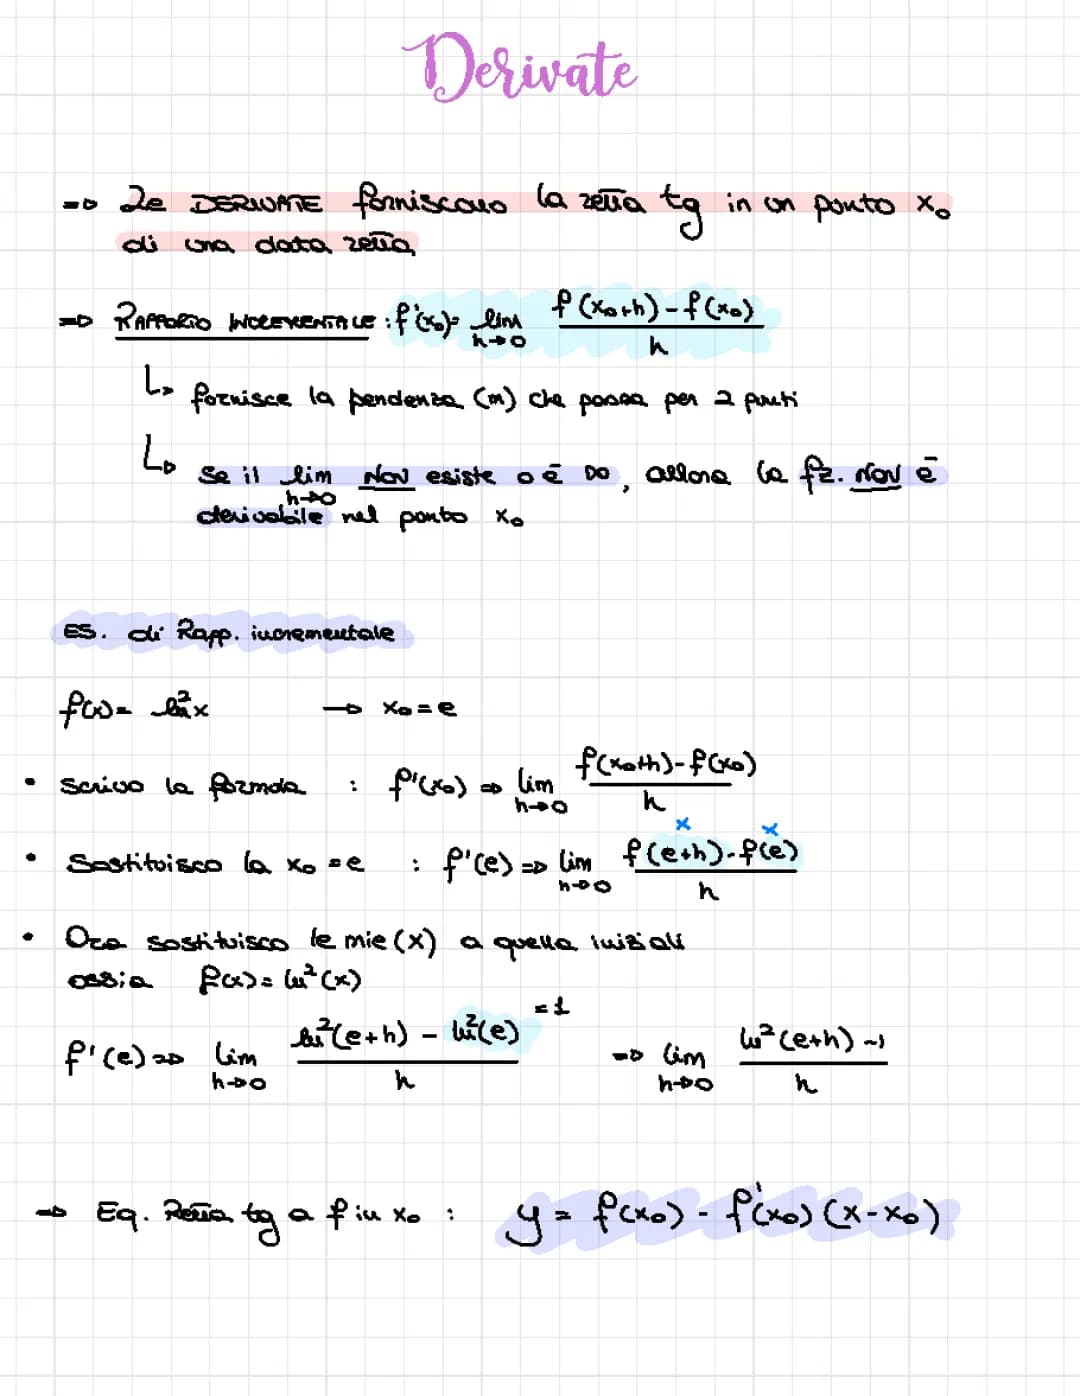 Derivate
=> Le DERIVATE forniscono la retta tg in un punto x₀
di una data retta
=> RAPPORTO INCREMENTALE : f'(x₀) = lim h→0 f(x₀+h) - f(x₀) / h
↳ fornisce la pendenza (m) che passa per 2 punti
↳ Se il lim h→0 NON esiste o è ∞, allora la fz. NON è
derivabile nel punto x₀
ES. di Rapp. incrementale
f(x) = ln²x → x₀ = e
• Scrivo la formula : f'(x₀) => lim h→0 f(x₀+h) - f(x₀) / h
x x
• Sostituisco la x₀ = e : f'(e) => lim h→0 f(e+h) - f(e) / h
• Ora sostituisco le mie (x) a quella iniziali
ossia f(x) = ln²(x)
f'(e) => lim h→0 ln²(e+h) - ln²(e) / h =1 => lim h→0 ln²(e+h) - 1 / h
=> Eq. Retta tg a f in x₀ : y = f(x₀) - f'(x₀) (x-x₀)